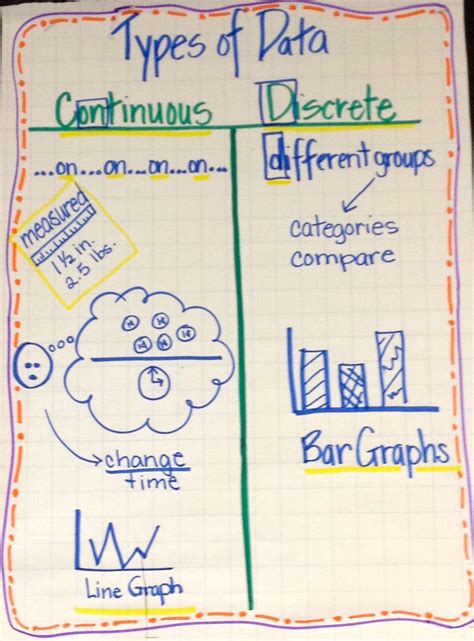 Types of Data
Continuous
...on...on...on...on...
measured
1 1/2 in.
2.5 lbs.
change
time
Line Graph
Discrete
different groups
categories
compare
Bar Graphs